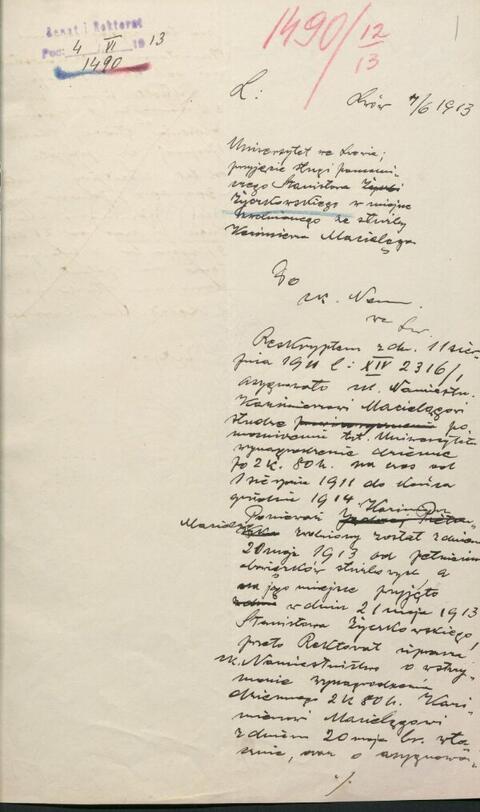 Senat i Rektorat
Pos: 4 VI 1913
1490
1490/12/13
L: Lwów 4/6 1913
Uniwersytet we Lwowie;
przyjęcie sługi pomocni-
czego Stanisława
Życzkowskiego w miejsce
zwolnionego ze służby
Kazimierza Macieląga
Do
ck. Nam.
we Lw.
Reskryptem z dn. 11 sier-
pnia 1911 l: XIV 2316/1
asygnowało ck. Namiestn.
Kazimierzowi Macielągowi
słudze po
mocniczemu tut. Uniwersytetu
wynagrodzenie dzienne
po 2 K. 80 h. na czas od
1 sierpnia 1911 do końca
grudnia 1914
Ponieważ Kazimierz
zwolniony został z dniem
20 maja 1913 od pełnienia
obowiązków służbowych a
na jego miejsce przyjęto
w dniu 21 maja 1913
Stanisława Życzkowskiego,
przeto Rektorat uprasza
ck. Namiestnictwo o wstrzy-
manie wynagrodzenia
dziennego 2 K 80 h. Kazi-
mierzowi Macielągowi
z dniem 20 maja br. włą-
cznie, oraz o asygnowa-
./.